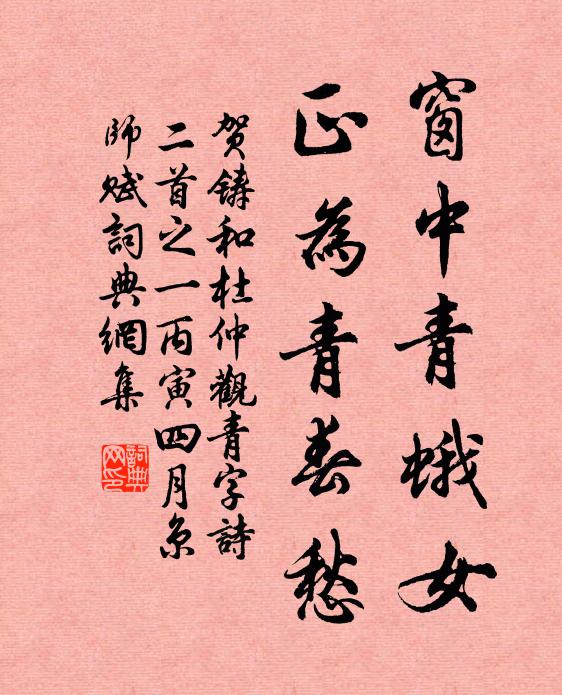 窗中青蛾女
正為青春愁
賀鑄和杜仲觀青字詩
二首之一丙寅四月京
師賦詞典網集
詞典
网印